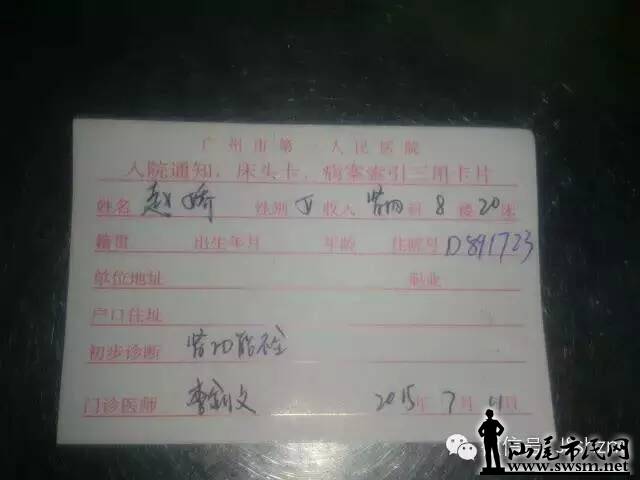 广州市第一人民医院
入院通知、床头卡、病案索引三用卡片
姓名 赵娇 性别 收入 肾内 科 8 楼 20 床
籍贯 出生年月 年龄 住院号 D891723
单位地址 职业
户口住址
初步诊断 肾功能不全
门诊医师 2015年7月 日
汕尾市民网
www.swsm.net